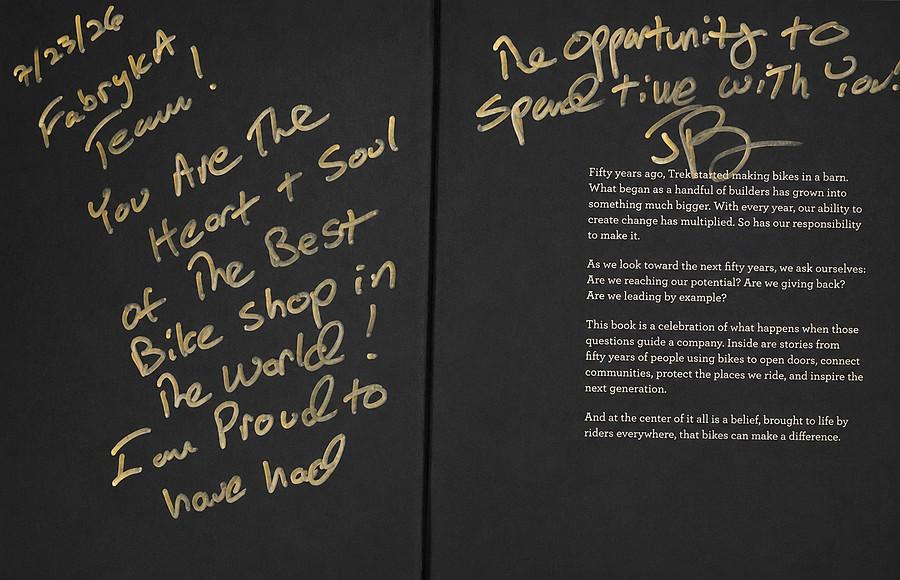 7/23/26
FabrykA
Team!
You Are The
Heart + Soul
of The Best
Bike shop in
The World!
I am Proud to
have had
The opportunity to
Spend time with You!
JB
Fifty years ago, Trek started making bikes in a barn.
What began as a handful of builders has grown into
something much bigger. With every year, our ability to
create change has multiplied. So has our responsibility
to make it.
As we look toward the next fifty years, we ask ourselves:
Are we reaching our potential? Are we giving back?
Are we leading by example?
This book is a celebration of what happens when those
questions guide a company. Inside are stories from
fifty years of people using bikes to open doors, connect
communities, protect the places we ride, and inspire the
next generation.
And at the center of it all is a belief, brought to life by
riders everywhere, that bikes can make a difference.